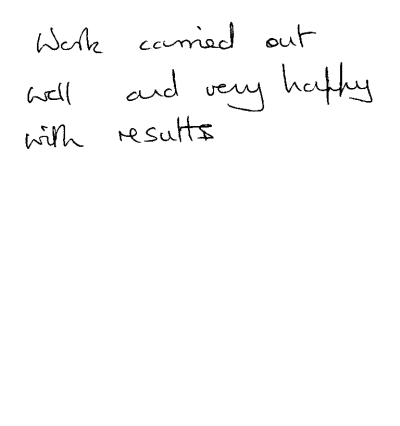 Work carried out
well and very happy
with results